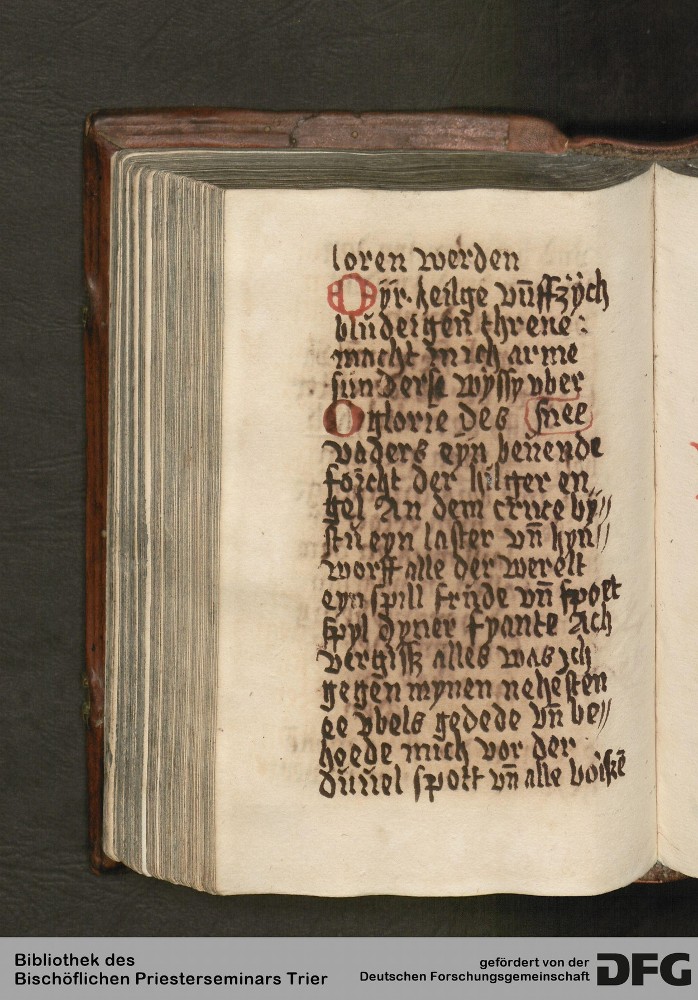 loren werden
O ÿr heilge vn̄ffzÿch
blůdeigen threne :
macht mich arme
sun derſe wÿſſy vber
O glorie des ſnee
vaders eyn beuende
forcht der hilger en
gel An dem cruce by〃
ſtu eyn laſter vn̄ hyn〃
worff alle der werelt
eyn ſpill frude vn̄ ſpoet
ſpyl dyner fyante Ach
vergiſſz alles was ich
gegen mynen neheſten
ee vbels gedede vn̄ be〃
hoede mich vor der
duuel ſpott vn̄ alle boiſzē
Bibliothek des
Bischöflichen Priesterseminars Trier
gefördert von der
Deutschen Forschungsgemeinschaft
DFG